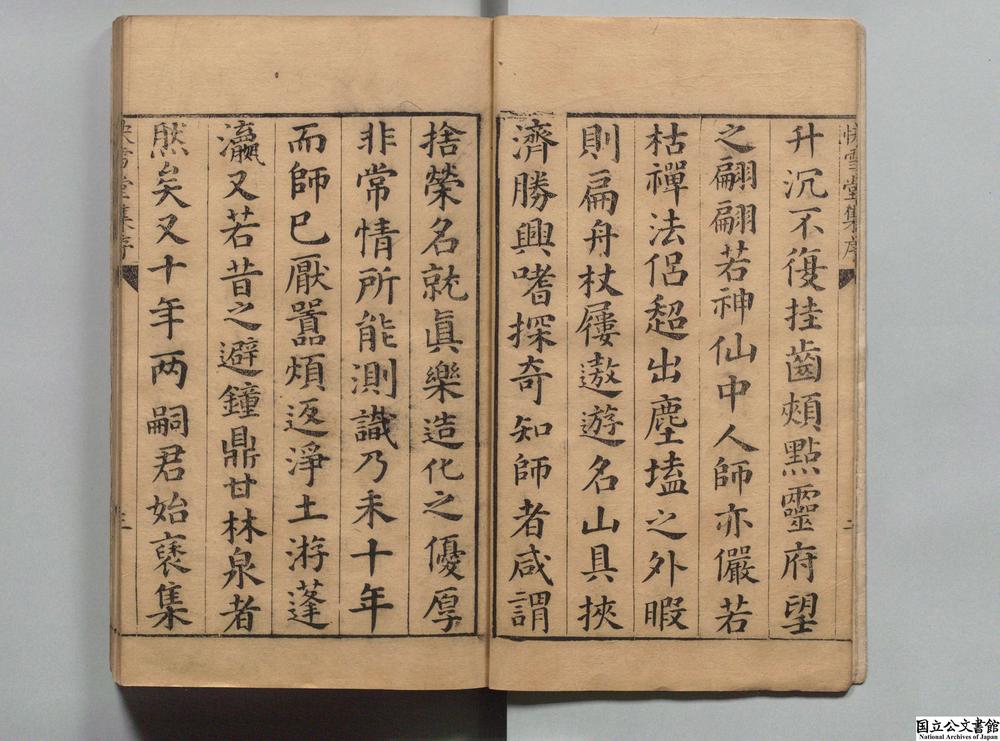 快雪堂集序
二
升沉不復挂齒頰點靈府望
之翩翩若神仙中人師亦儼若
枯禪法侶超出塵壒之外暇
則扁舟杖屨遨遊名山具挾
濟勝興嗜探奇知師者咸謂
捨榮名就眞樂造化之優厚
非常情所能測識乃未十年
而師已厭囂煩返淨土游蓬
瀛又若昔之避鐘鼎甘林泉者
然矣又十年两嗣君始裒集
快雪堂集序
三
国立公文書館
National Archives of Japan